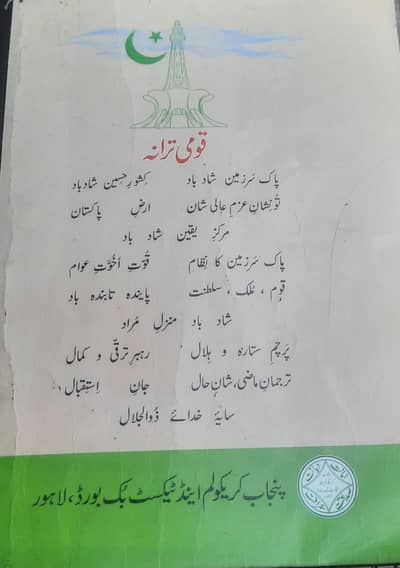 قومی ترانہ
پاک سَرزمین شاد باد کِشورِ حسین شاد باد
تُو نِشانِ عزمِ عالی شان ارضِ پاکستان
مرکزِ یقین شاد باد
پاک سَرزمین کا نِظام قُوّتِ اُخُوّتِ عوام
قَوم ، مُلک ، سلطنت پایندہ تابندہ باد
شاد باد منزلِ مُراد
پَرچمِ ستارہ و ہِلال رہبرِ ترقّی و کمال
ترجمانِ ماضی، شانِ حال جانِ اِستِقبال
سایۂ خدائے ذُوالجلال
پنجاب کریکولم اینڈ ٹیکسٹ بُک بورڈ، لاہور